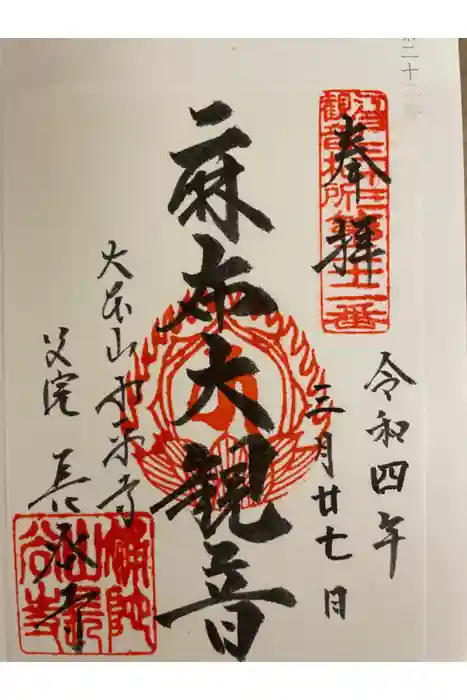 二十
奉拝
江戸三十三
観音札所第二十二番
令和四年
三月廿七日
麻布大観音
大本山永平寺
別院 長谷寺
補陀
山長
谷寺